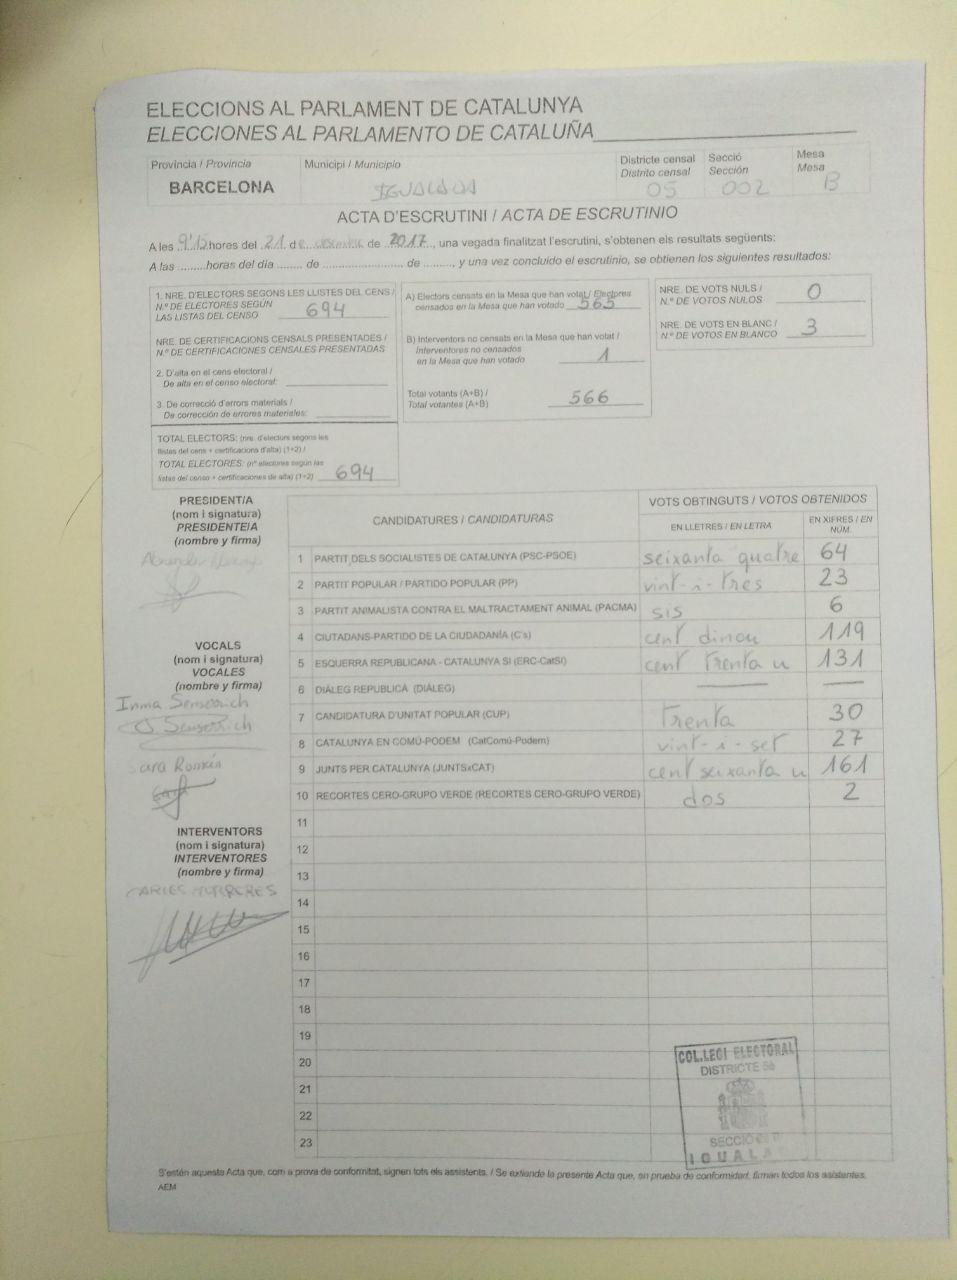 ELECCIONS AL PARLAMENT DE CATALUNYA
ELECCIONES AL PARLAMENTO DE CATALUÑA
Província / Provincia
BARCELONA
Municipi / Municipio
IGUALADA
Districte censal
Distrito censal
05
Secció
Sección
002
Mesa
Mesa
B
ACTA D'ESCRUTINI / ACTA DE ESCRUTINIO
A les 9'15 hores del 21 de desembre de 2017, una vegada finalitzat l'escrutini, s'obtenen els resultats següents:
A las .........horas del día ........ de .......................... de ........., y una vez concluido el escrutinio, se obtienen los siguientes resultados:
1. NRE. D'ELECTORS SEGONS LES LLISTES DEL CENS /
N.º DE ELECTORES SEGÚN
LAS LISTAS DEL CENSO 694
NRE. DE CERTIFICACIONS CENSALS PRESENTADES /
N.º DE CERTIFICACIONES CENSALES PRESENTADAS
2. D'alta en el cens electoral /
De alta en el censo electoral:
3. De correcció d'errors materials /
De corrección de errores materiales:
TOTAL ELECTORS: (nre. d'electors segons les
llistes del cens + certificacions d'alta) (1+2) /
TOTAL ELECTORES: (nº electores según las
listas del censo + certificaciones de alta) (1+2) 694
A) Electors censats en la Mesa que han votat / Electores
censados en la Mesa que han votado 565
B) Interventors no censats en la Mesa que han votat /
Interventores no censados
en la Mesa que han votado 1
Total votants (A+B) /
Total votantes (A+B) 566
NRE. DE VOTS NULS /
N.º DE VOTOS NULOS 0
NRE. DE VOTS EN BLANC /
N.º DE VOTOS EN BLANCO 3
PRESIDENT/A
(nom i signatura)
PRESIDENTE/A
(nombre y firma)
VOCALS
(nom i signatura)
VOCALES
(nombre y firma)
Inma Senserrich
Senserrich
Sara Román
INTERVENTORS
(nom i signatura)
INTERVENTORES
(nombre y firma)
CARLES
CANDIDATURES / CANDIDATURAS
VOTS OBTINGUTS / VOTOS OBTENIDOS
EN LLETRES / EN LETRA
EN XIFRES / EN NÚM.
1 PARTIT DELS SOCIALISTES DE CATALUNYA (PSC-PSOE) seixanta quatre 64
2 PARTIT POPULAR / PARTIDO POPULAR (PP) vint-i-tres 23
3 PARTIT ANIMALISTA CONTRA EL MALTRACTAMENT ANIMAL (PACMA) sis 6
4 CIUTADANS-PARTIDO DE LA CIUDADANÍA (C's) cent dinou 119
5 ESQUERRA REPUBLICANA - CATALUNYA SÍ (ERC-CatSí) cent trenta u 131
6 DIÀLEG REPUBLICÀ (DIÀLEG)
7 CANDIDATURA D'UNITAT POPULAR (CUP) trenta 30
8 CATALUNYA EN COMÚ-PODEM (CatComú-Podem) vint-i-set 27
9 JUNTS PER CATALUNYA (JUNTSxCAT) cent seixanta u 161
10 RECORTES CERO-GRUPO VERDE (RECORTES CERO-GRUPO VERDE) dos 2
11
12
13
14
15
16
17
18
19
20
21
22
23
COL.LEGI ELECTORAL
DISTRICTE
SECCIÓ
S'estén aquesta Acta que, com a prova de conformitat, signen tots els assistents. / Se extiende la presente Acta que, en prueba de conformidad, firman todos los asistentes.
AEM